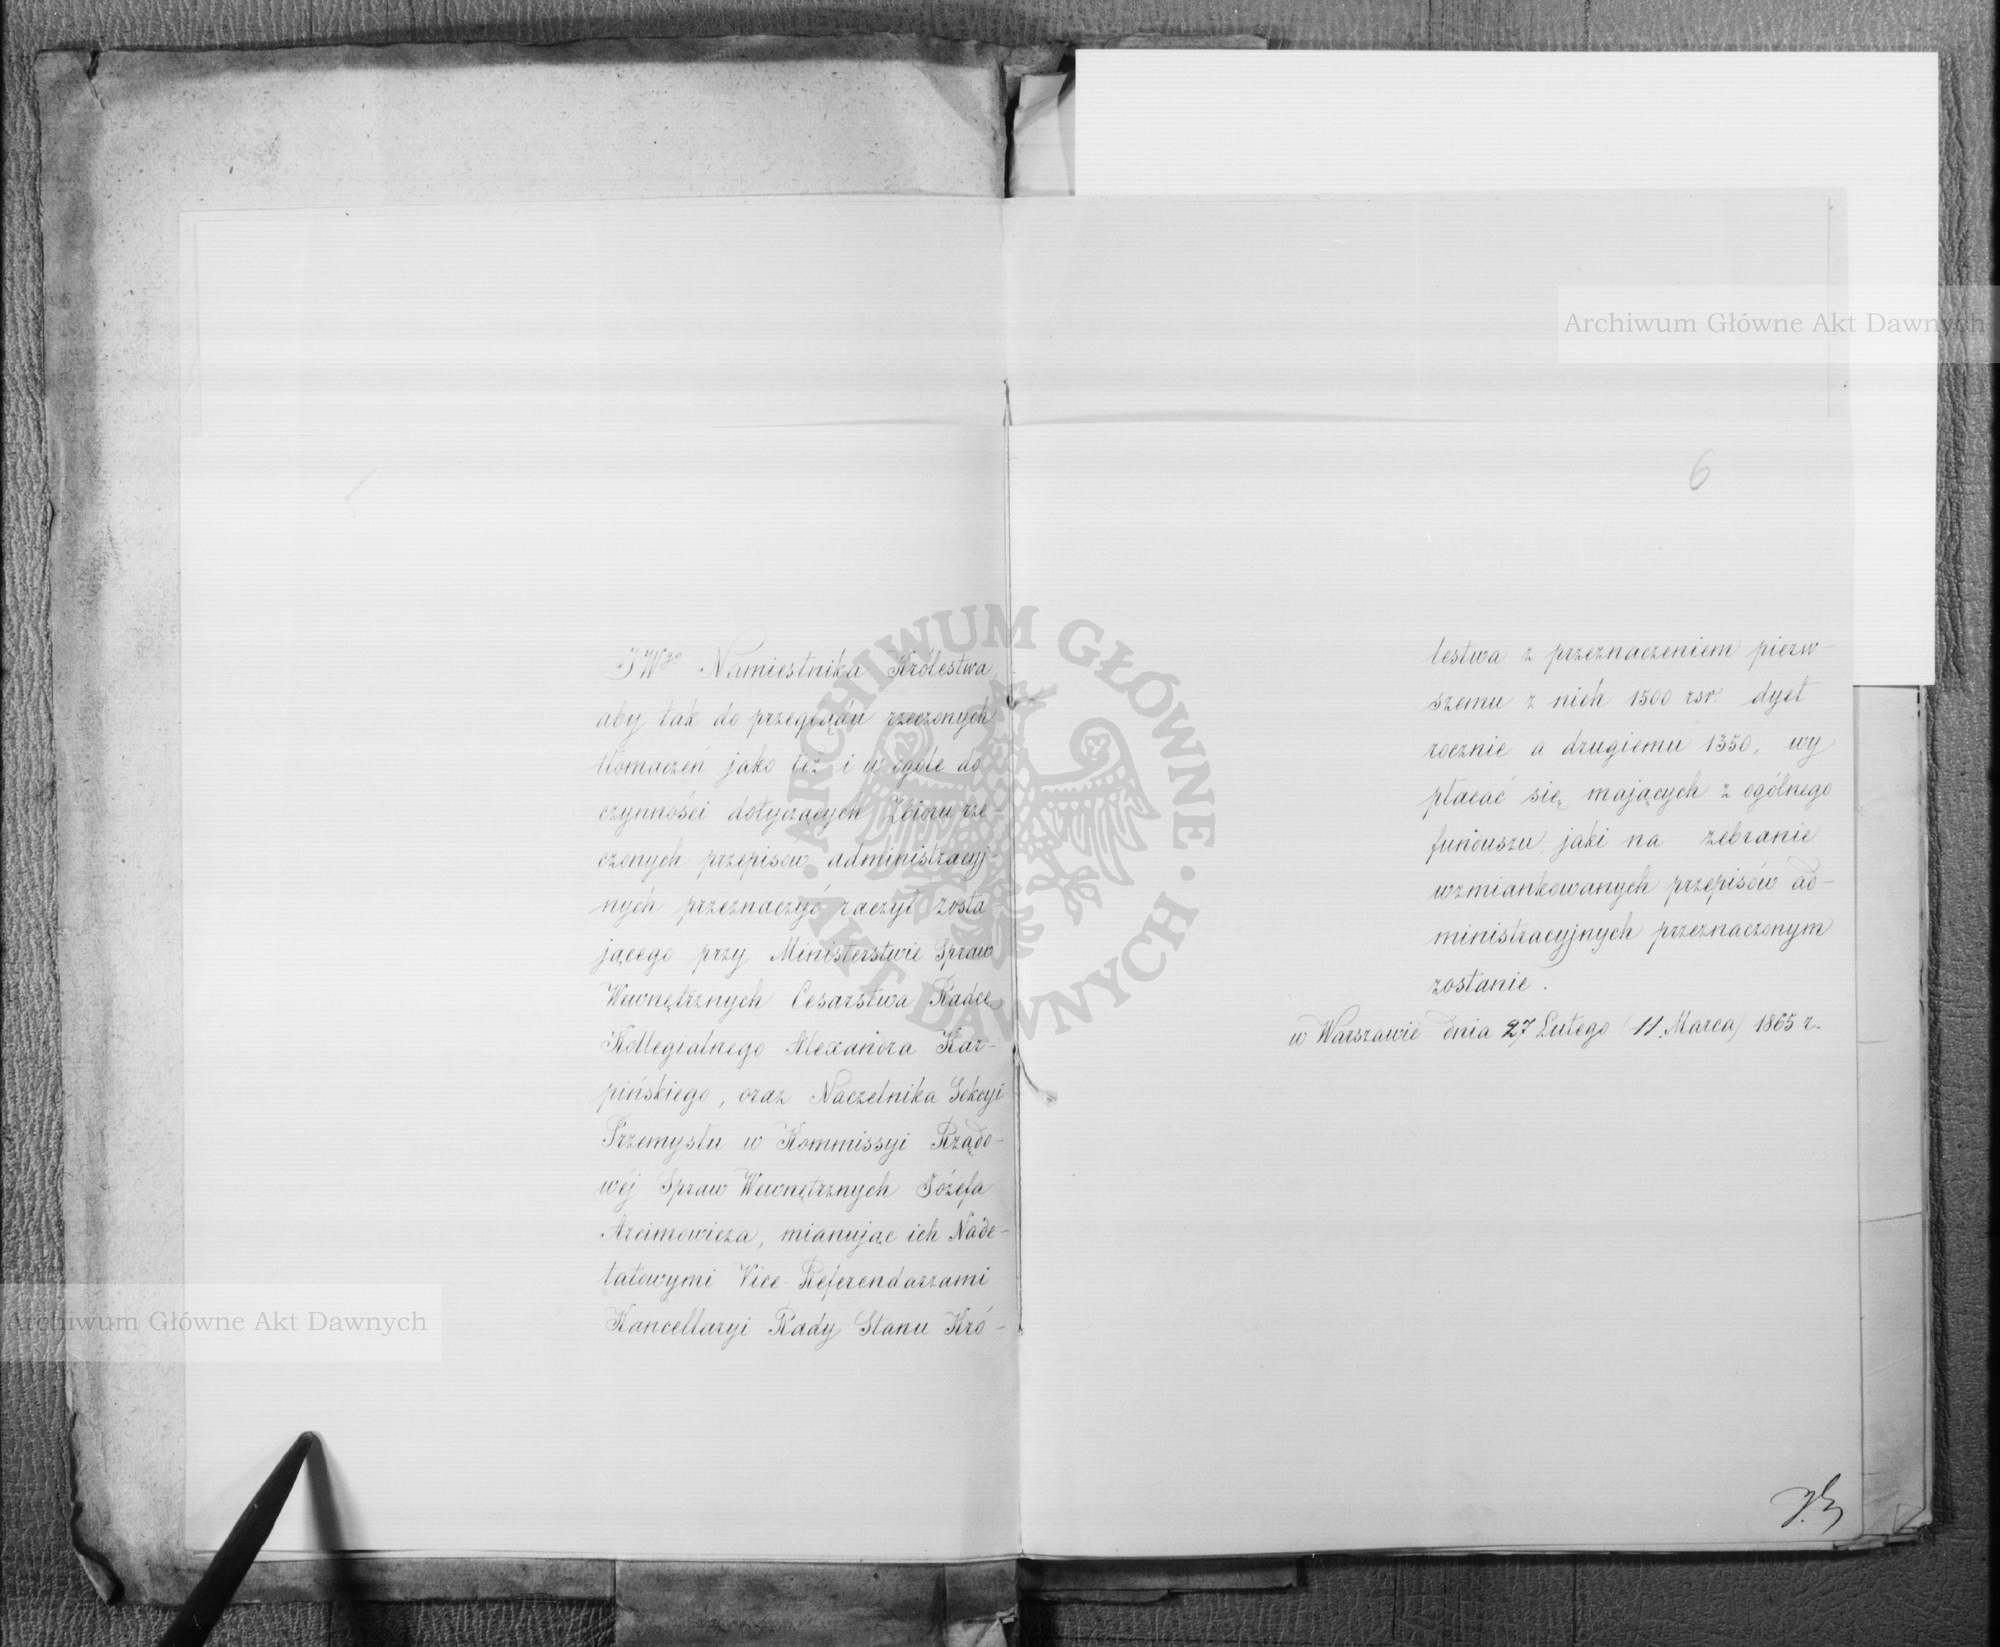 JWgo Namiestnika Królestwa,
aby tak do przeglądu rzeczonych
tłomaczeń jako też i w ogóle do
czynności dotyczących Zbioru rze-
czonych przepisów administracyj-
nych przeznaczyć raczył zosta-
jącego przy Ministerstwie Spraw
Wewnętrznych Cesarstwa Radcę
Kollegialnego Alexandra Kar-
pińskiego, oraz Naczelnika Sekcyi
Przemysłu w Kommissyi Rządo-
wéj Spraw Wewnętrznych Józefa
Arcimowicza, mianując ich Nade-
tatowymi Vice-Referendarzami
Kancellaryi Rady Stanu Kró-
6
lestwa z przeznaczeniem pierw-
szemu z nich 1500 rsr. dyet
rocznie a drugiemu 1350, wy
płacać się mających z ogólnego
funduszu, jaki na zebranie
wzmiankowanych przepisów ad-
ministracyjnych przeznaczonym
zostanie.
w Warszawie dnia 27 Lutego (11 Marca) 1865 r.
Archiwum Główne Akt Dawnych
Archiwum Główne Akt Dawnych
ARCHIWUM GŁÓWNE
AKT DAWNYCH